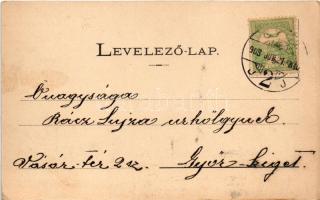 LEVELEZŐ-LAP.
Őnagysága
Rácz Lujza urhölgynek.
Vásár tér 2 sz. Győr-Sziget.